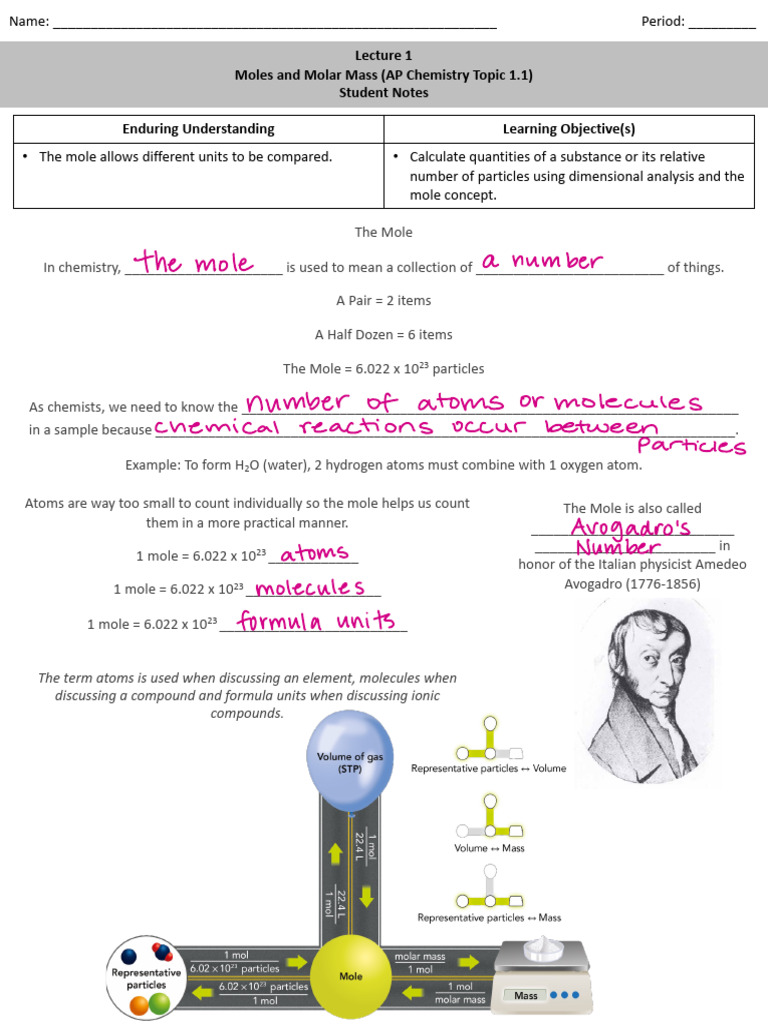 Name: ___________________________________________________________ Period: _________
Lecture 1
Moles and Molar Mass (AP Chemistry Topic 1.1)
Student Notes
Enduring Understanding
• The mole allows different units to be compared.
Learning Objective(s)
• Calculate quantities of a substance or its relative
number of particles using dimensional analysis and the
mole concept.
The Mole
In chemistry, the mole is used to mean a collection of a number of things.
A Pair = 2 items
A Half Dozen = 6 items
The Mole = 6.022 x 10²³ particles
As chemists, we need to know the number of atoms or molecules
in a sample because chemical reactions occur between
particles.
Example: To form H₂O (water), 2 hydrogen atoms must combine with 1 oxygen atom.
Atoms are way too small to count individually so the mole helps us count
them in a more practical manner.
1 mole = 6.022 x 10²³ atoms
1 mole = 6.022 x 10²³ molecules
1 mole = 6.022 x 10²³ formula units
The Mole is also called
Avogadro's
Number in
honor of the Italian physicist Amedeo
Avogadro (1776-1856)
The term atoms is used when discussing an element, molecules when
discussing a compound and formula units when discussing ionic
compounds.
Volume of gas
(STP)
1 mol
22.4 L
22.4 L
1 mol
Representative particles ↔ Volume
Volume ↔ Mass
Representative particles ↔ Mass
Representative
particles
1 mol
6.02 × 10²³ particles
6.02 × 10²³ particles
1 mol
Mole
molar mass
1 mol
1 mol
molar mass
Mass